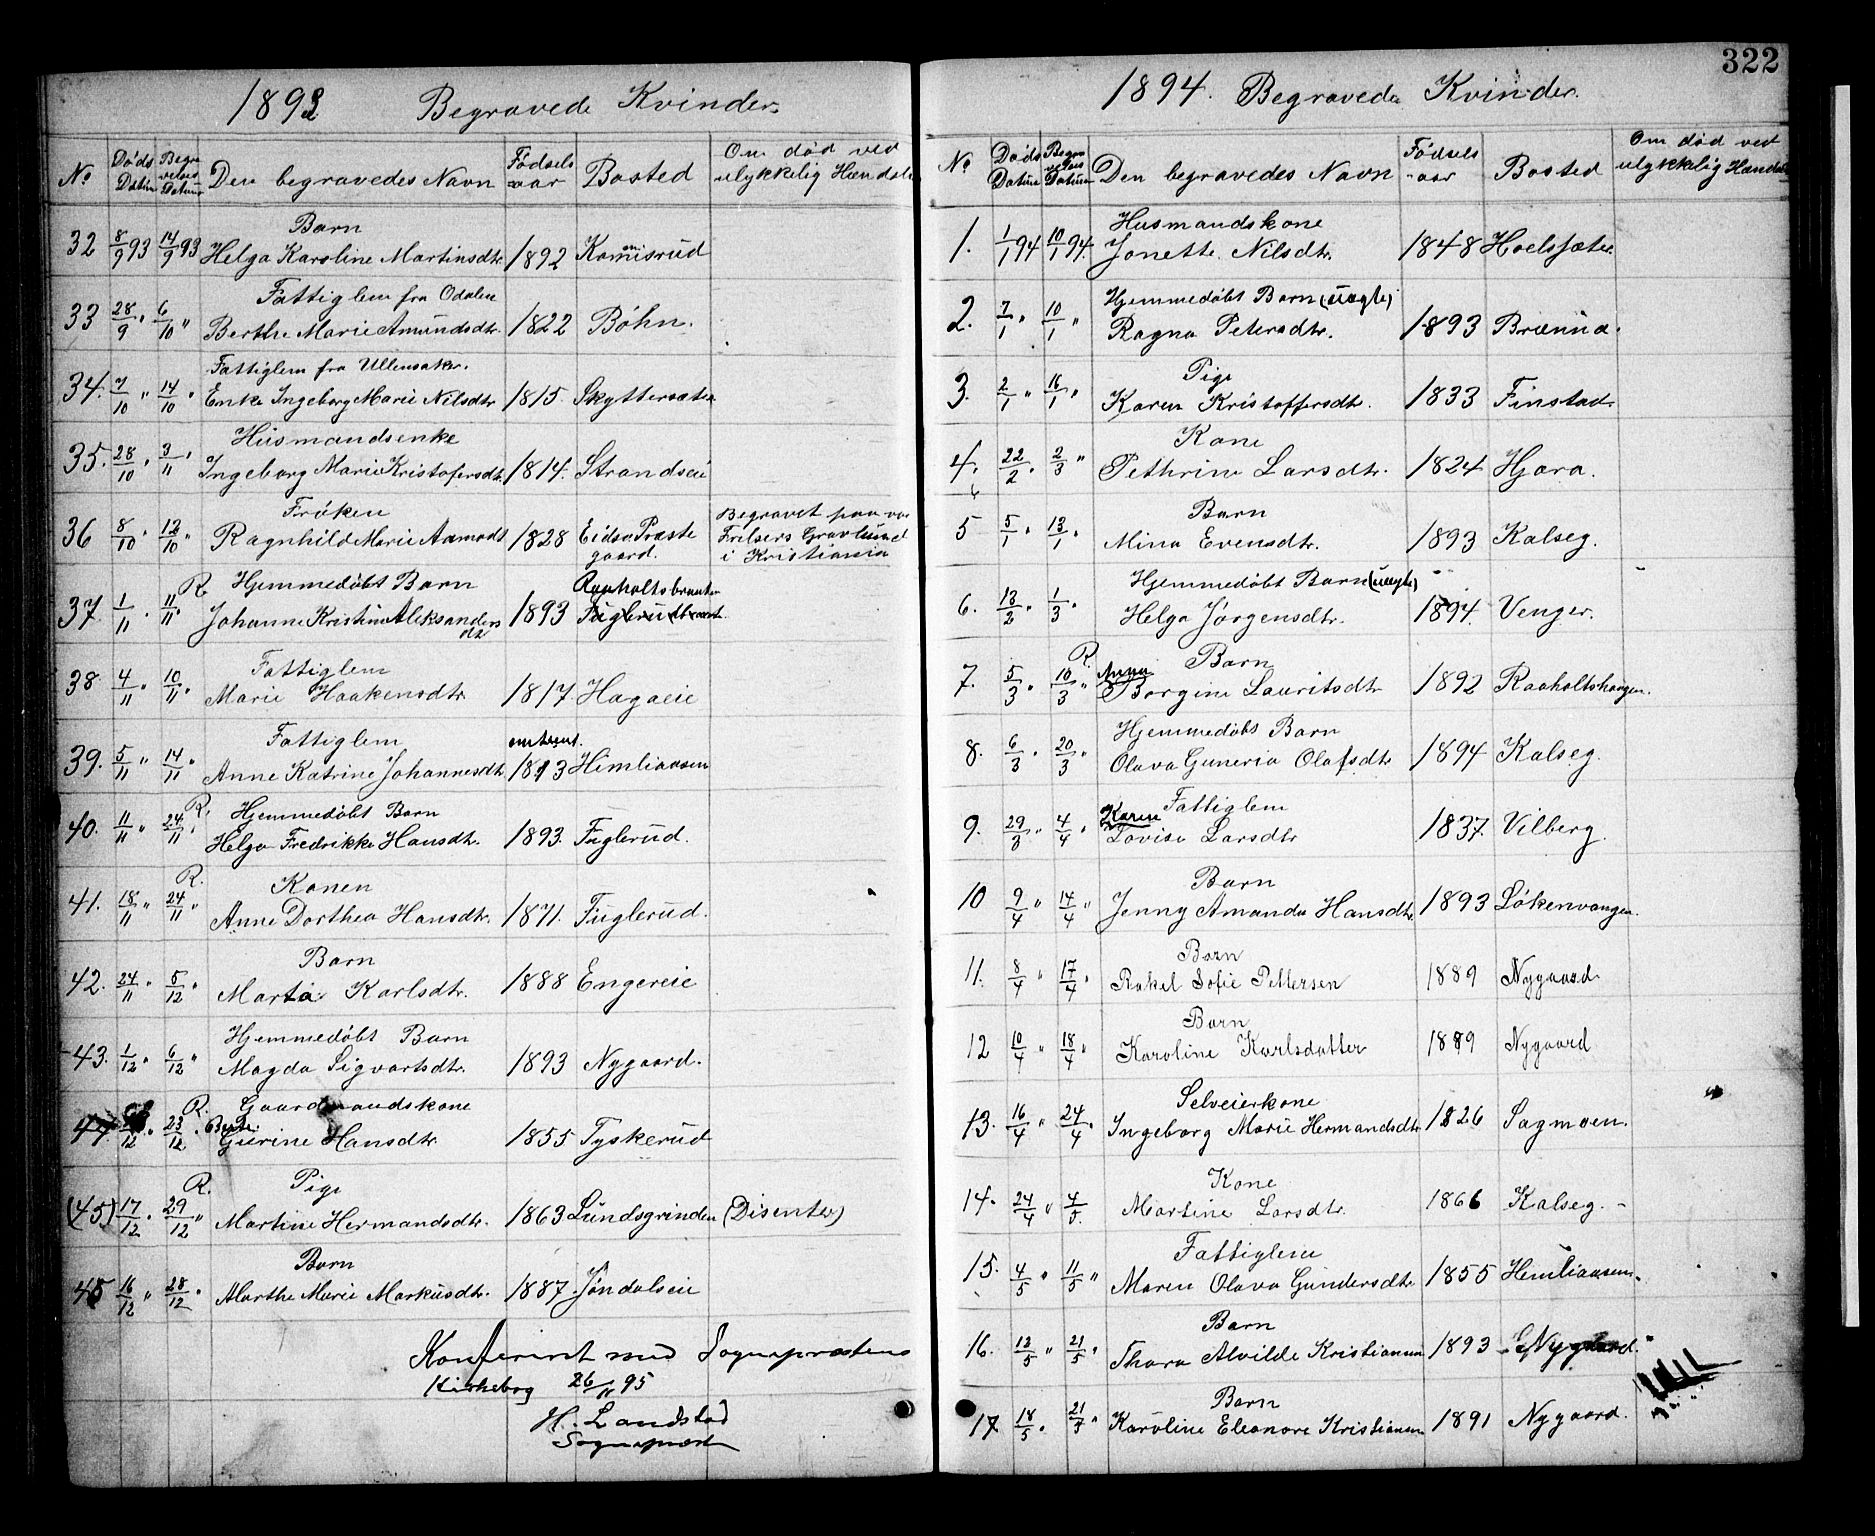 322
1893 Begravede Kvinder
No Døds Datum Begravelses Datum Den begravedes Navn Fødselsaar Bosted Om død ved ulykkelig Hændelse
Barn
32 8/9 93 14/9 93 Helga Karoline Martinsdtr. 1892 Komisrud
Fattiglem fra Odalen
33 28/9 " 6/10 " Berthe Marie Amundsdtr. 1822 Bøhn.
Fattiglem fra Ullensaker.
34. 7/10 " 14/10 " Enke Ingeborg Marie Nilsdtr 1815. Skyttersæter
Husmandsenke
35. 28/10 " 3/11 " Ingeborg Marie Kristofersdtr. 1814. Strandseie
Frøken
36 8/10 " 12/10 " Ragnhild Marie Aamodt 1828 Eidsv. Præstegaard. Begravet paa vor Frelsers Gravlund i Kristiania
R. Hjemmedøbt Barn Raaholtsbraaten
37. 1/11 " 11/11 " Johanne Kristine Aleksandersdtr 1893 Fuglerudbraat.
Fattiglem
38. 4/11 " 10/11 " Marie Haakensdtr. 1817. Hagaeie
Fattiglem omtrent.
39. 5/11 " 14/11 " Anne Katrine Johannesdtr. 1813 Himliaasen
R. Hjemmedøbt Barn
40. 11/11 " 24/11 " Helga Fredrikke Hansdtr. 1893. Fuglerud.
R. Konen
41. 18/11 " 24/11 " Anne Dorthea Hansdtr. 1871. Fuglerud.
Barn
42. 24/11 " 5/12 " Marta Karlsdtr. 1888 Engereie
Hjemmedøbt Barn
43. 1/12 " 6/12 " Magda Sigvartsdtr. 1893 Nygaard.
R. Gaardmandskone
44 /12 " 23/12 " Gurine Hansdtr. 1855 Tyskerud
R. Pige
(45) 17/12 " 29/12 " Martine Hermandsdtr. 1863 Lundsgrinden (Disenter)
Barn
45 16/12 " 28/12 " Marthe Marie Markusdtr. 1887. Jøndalseie
Konfereret med Sogneprestens
Kirkebog 26/11 95
H. Landstad
Sogneprest
1894. Begravede Kvinder.
No Døds Datum Begravelses Datum Den begravedes Navn Fødselsaar Bosted Om død ved ulykkelig Hændelse
Husmandskone
1. 1/1 94 10/1 94. Jonette Nilsdtr. 1848 Hoelsæter.
Hjemmedøbt Barn (uægte)
2. 7/1 " 10/1 " Ragna Petersdtr. 1893 Brænna.
Pige
3. 2/1 " 16/1 " Karen Kristoffersdtr. 1833 Finstad.
Kone
4. 22/2 " 2/3 " Pethrine Larsdtr. 1824 Hjæra.
Barn
5 5/1 " 13/1 " Mina Evensdtr. 1893 Kalseg.
Hjemmedøbt Barn (uægte)
6. 13/2 " 1/3 " Helga Jørgensdtr. 1894. Venger.
R. Barn
7. 5/3 " 10/3 " Anna Borgine Lauritsdtr 1892 Raaholtshaugen.
Hjemmedøbt Barn
8. 6/3 " 20/3 " Olava Guneria Olafsdtr 1894 Kalseg.
Fattiglem
9. 29/3 " 4/4 " Karen Lovise Larsdtr 1837. Vilberg.
Barn
10 9/4 " 14/4 " Jenny Amanda Hansdtr. 1893 Løkenvangen.
Barn
11. 8/4 " 17/4 " Rakel Sofie Pettersen 1889 Nygaard
Barn
12 10/4 " 18/4 " Karoline Karlsdatter 1889 Nygaard
Selveierkone
13. 16/4 " 24/4 " Ingeborg Marie Hermandsdtr. 1826 Sagmoen.
Kone
14. 24/4 " 4/5. Martine Larsdtr. 1866 Kalseg.
Fattiglem
15. 4/5 " 11/5 " Maren Olava Gundersdtr. 1855 Hemliaasen.
Barn
16. 12/5 " 21/5 " Thora Alvilde Kristiansen 1893 Nygaard.
Barn
17 18/5 " 21/5 " Karoline Eleonore Kristiansen 1891 Nygaard.